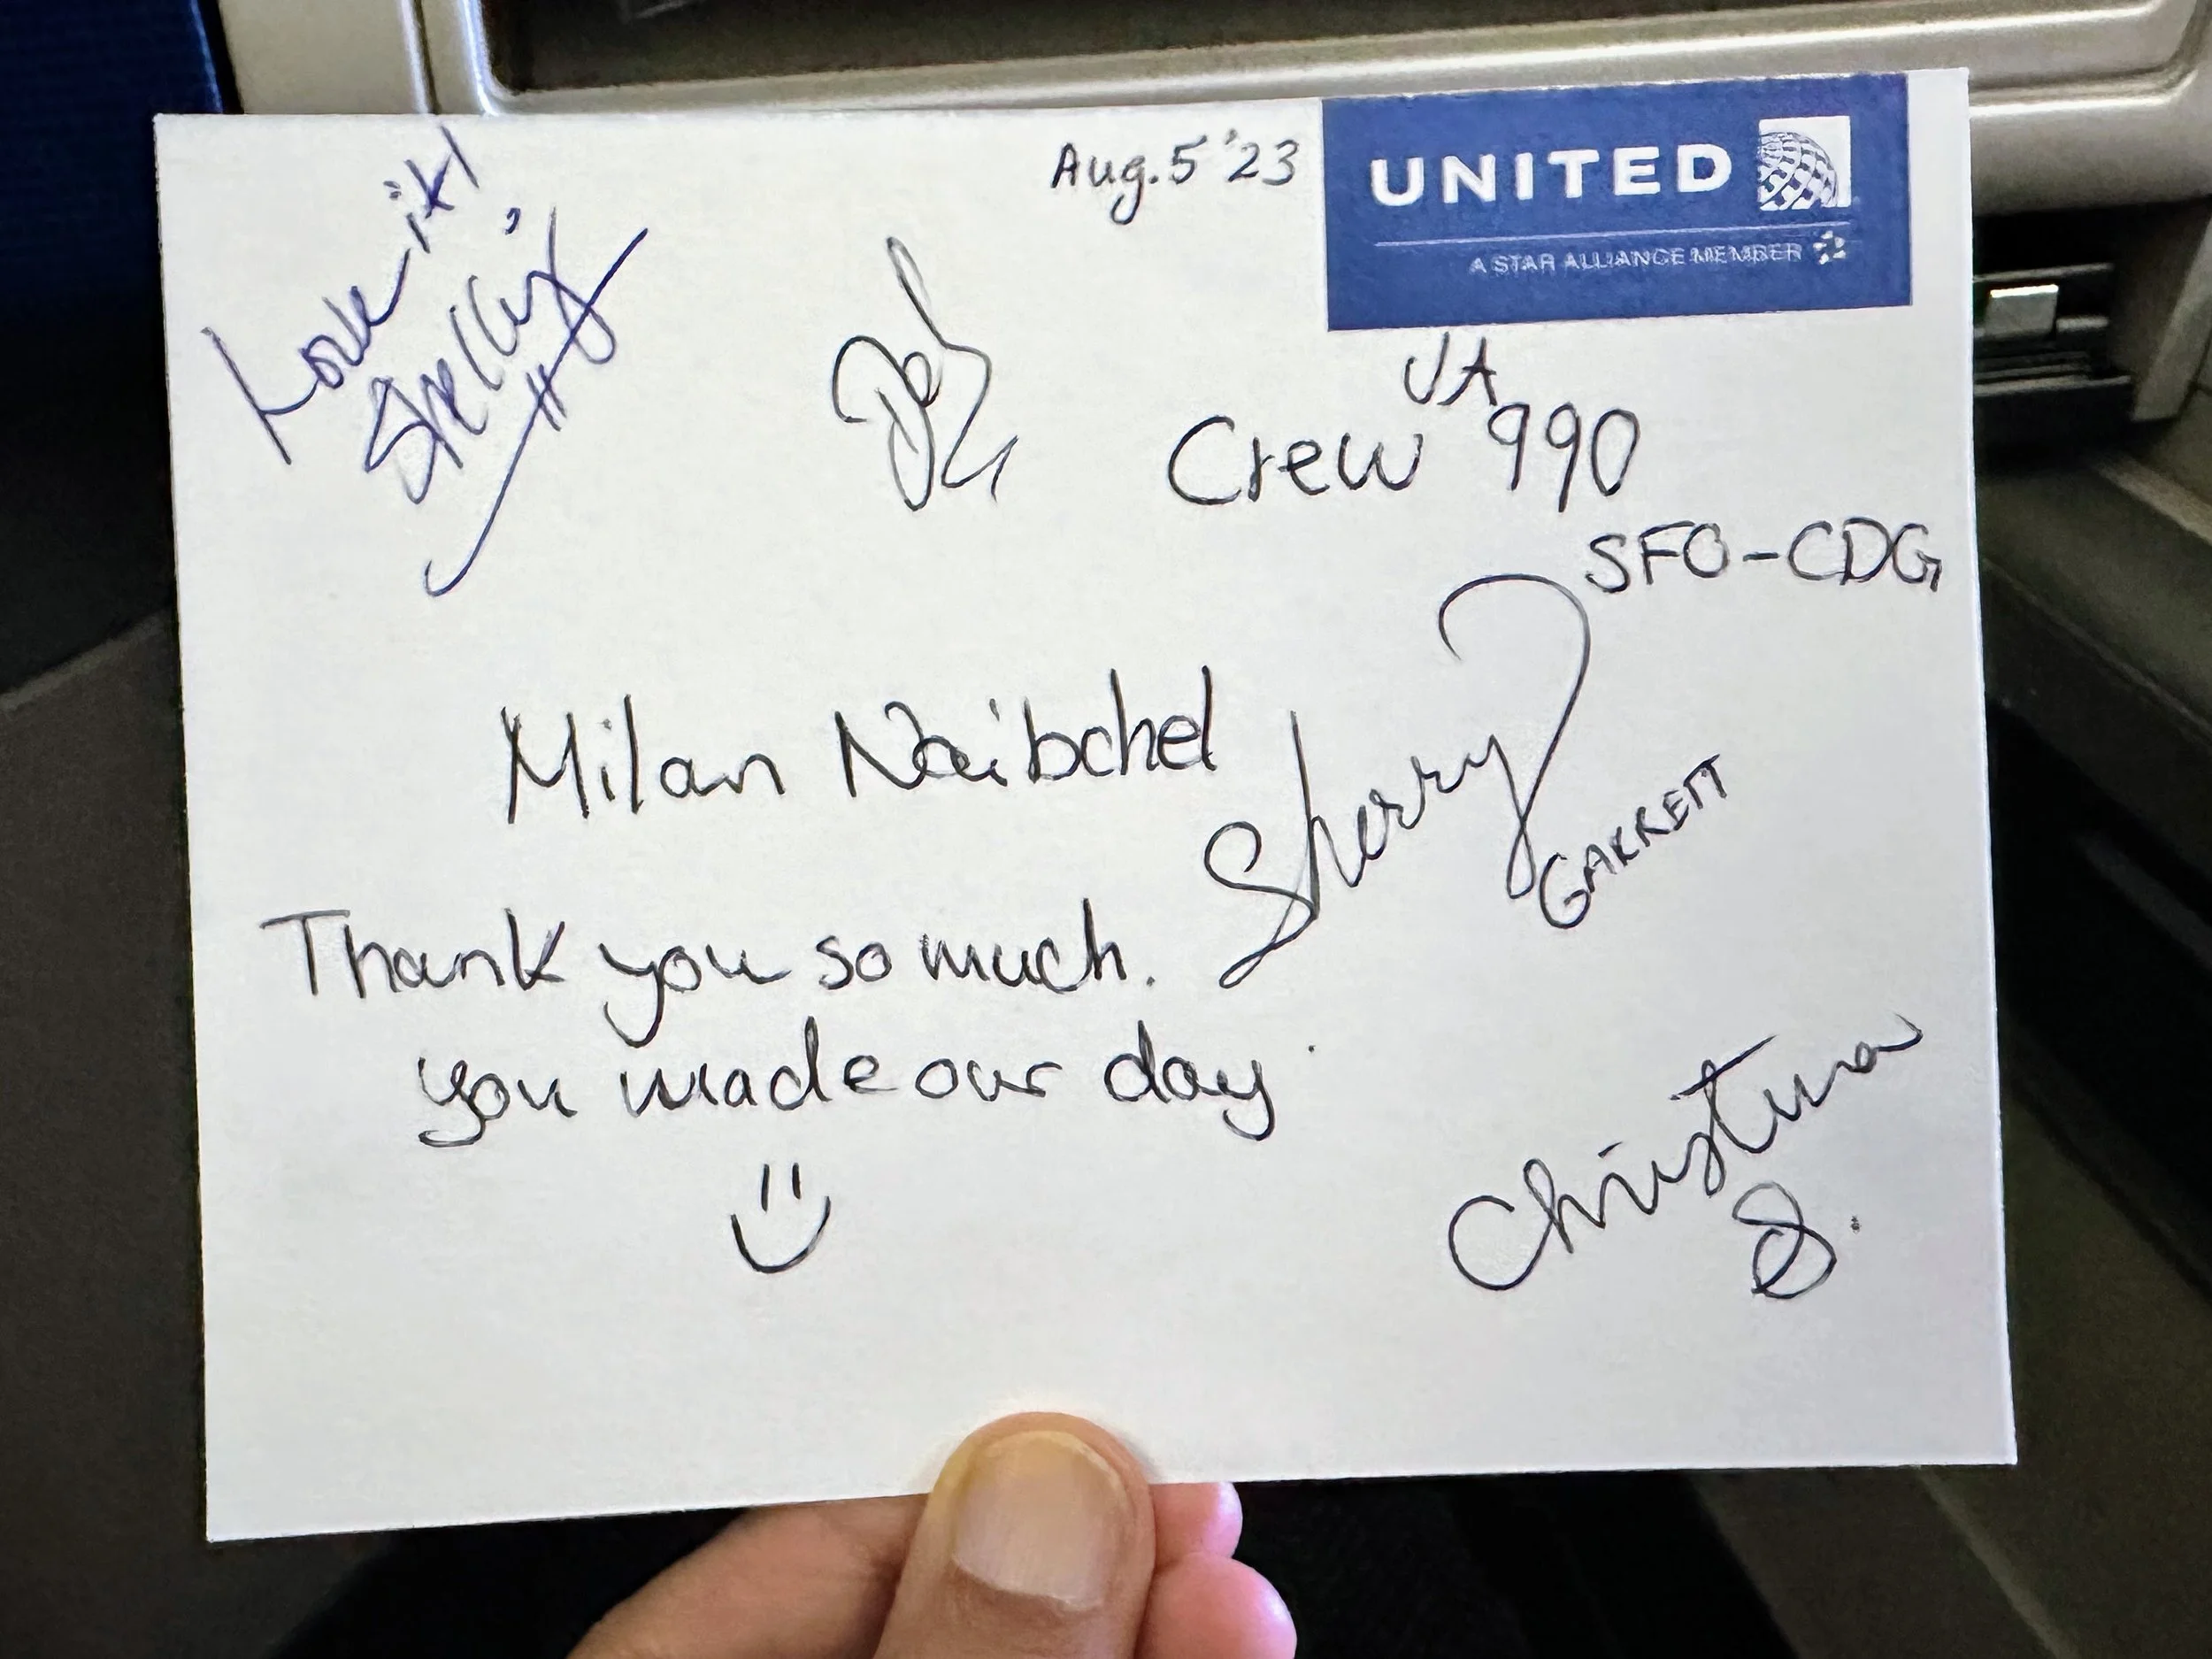 Love it!
Shelly
Aug. 5 '23
UNITED
A STAR ALLIANCE MEMBER
UA
Crew 990
SFO-CDG
Milan Naibchel
Sherry
GARRETT
Thank you so much.
you made our day.
Christina
S.